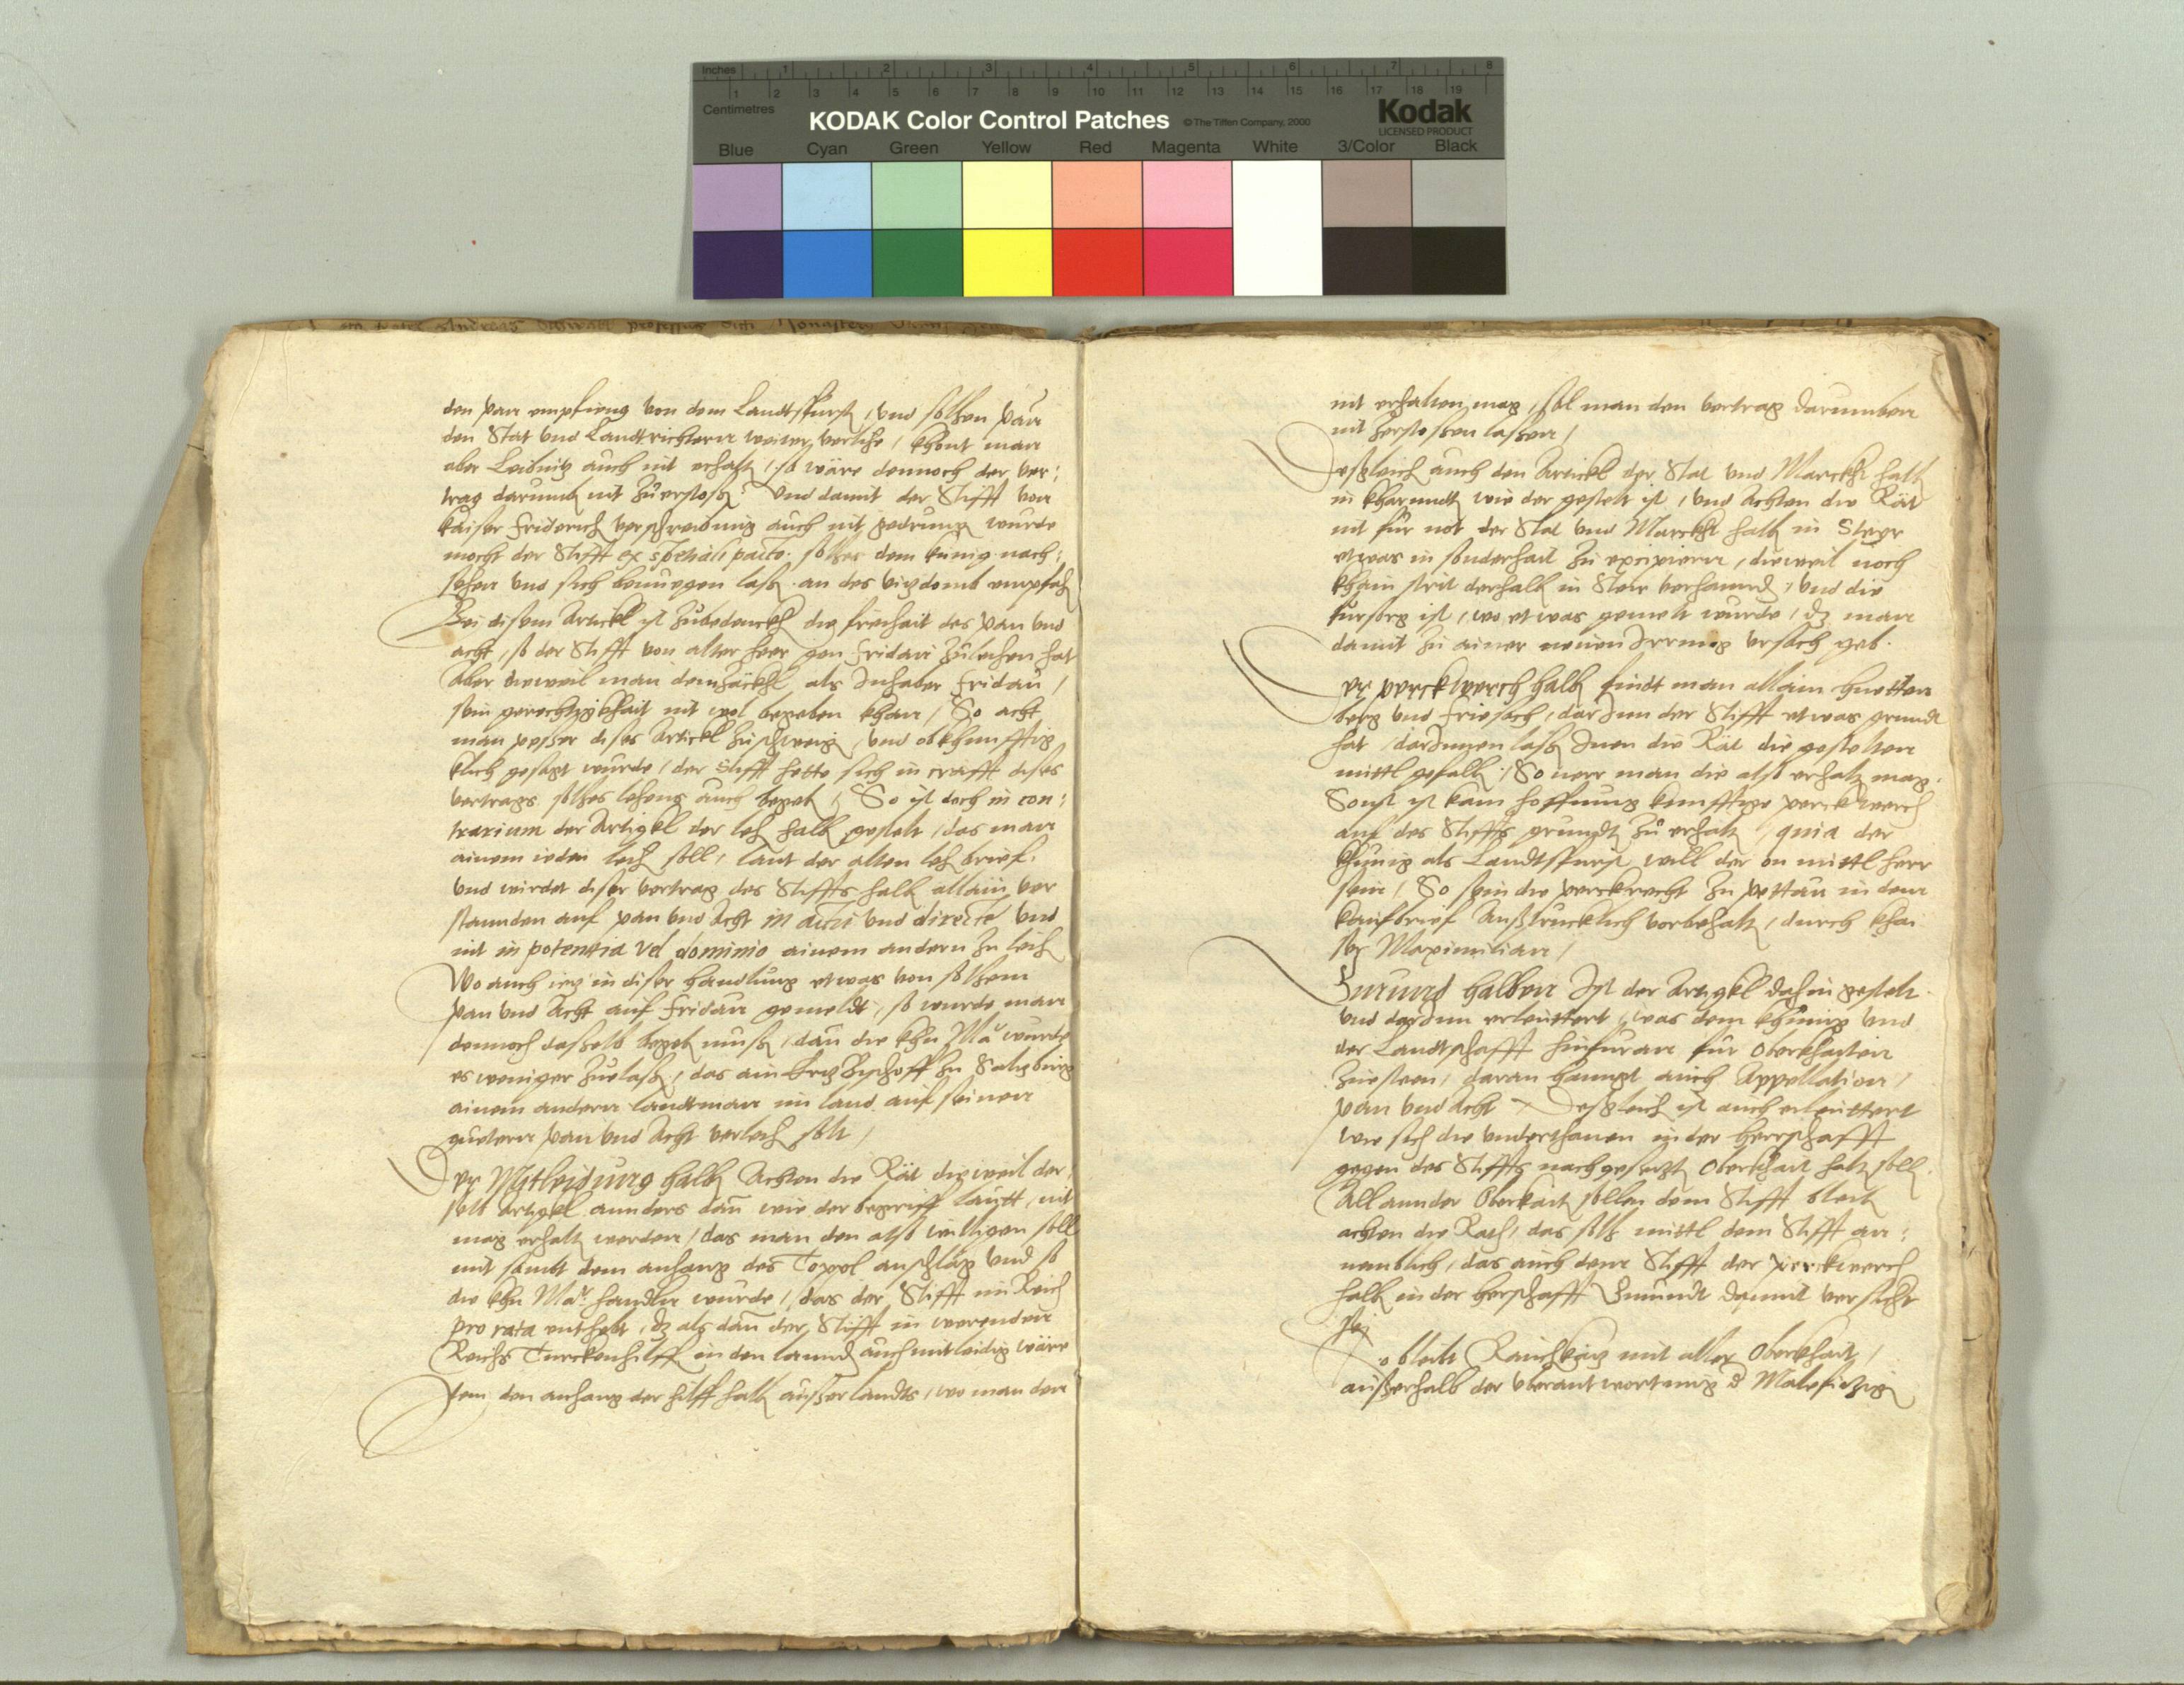 inches 1 2 3 4 5 6 7 8
Centimetres 1 2 3 4 5 6 7 8 9 10 11 12 13 14 15 16 17 18 19
KODAK Color Control Patches © The Tiffen Company, 2000 Kodak
LICENSED PRODUCT
Blue Cyan Green Yellow Red Magenta White 3/Color Black
den pan empfieng von dem Landtsfurst, und solhen pan
den Stat und Landtrichtern weiter verlihe / khont man
aber Leibnitz auch nit erhalt, so wäre dennoch der ver:
trag darumb nit zuerstossn. Und damit der Stifft von
kaiser Friderich verschreibung auch nit gedrung wurde
mocht der Stifft ex spetiali pacto solhes dem kunig nach:
sehen und sich benuegen lassn an des vizdomb empfeh
Bei disem Artickl ist zubedenckh die freihait des pan und
acht, so der Stifft von alter heer gen Fridau zulechen hat
Aber dieweil man dem als Inhaber Fridau /
sein gerechtigkhait nit wol begeben khan / So acht
man pesser dises Artickl zuschweig, und ob khunfftig
klich gesagt wurde / der Stifft hette sich in crafft dises
vertrags solhes lehens auch begeb / So ist doch in con:
trarium der Artigkl der leh halb gestelt / das man
ainem ieden leich soll, laut der alten leh brief.
Und wirdet diser vertrag des Stiffts halb allain ver
standen auf pan und Acht in actu und directe und
nit in potentia vel dominio ainem andern zu leich
Wo auch ietz in diser handlung etwas von solhem
pan und Acht auf Fridau gemeldt, so wurde man
dennoch dasselb begeb muessn, dan die khu Mat wurde
es weniger zuelassn, das ain Ertzbischoff zu Saltzburg
ainem andern landtman im land auf seinen
guetern pan und Acht verleich solt /
Der Mitleidung halb Achten die Rät dieweil der
selb Artigkl annders dan wie der begriff lautt, nit
mag erhalt werden / das man den also willigen soll
mit sambt dem anhang des Toppl anschlag und so
die khu Mat handln wurde / das der Stifft im Reich
pro rata enthebt, dz als dan der Stifft in werenden
Reichs Turckenhilff in den lannd auch mitleidig wäre
Item den anhang der hilff halb ausser landts, wo man den
nit erhalten mag, sol man den vertrag darumben
nit zerstossen lassen /
Dessgleich auch den Artickl der Stat und Marckht halb
in kharnndt wie der gestelt ist, und Achten die Rät
nit für not der Stat und Marckht halb in Steyr
etwas in sonderhait zu excipiern, dieweil noch
khain streit derhalb in Steir verhannd, und die
fursorg ist, wo etwas gemelt wurde, dz man
damit zu ainer neuen Irrung ursach geb.
Der perckwerch halb findt man allain huetten
berg und Friesach, darInn der Stifft etwas grundt
hat, darInnen lassn Inen die Rät die gestelten
mittl gefalln. So verr man die also erhalt mag.
Sonst ist kain hoffnung kunfftige perckwerch
auf des Stiffts grundt zu erhalt, quia der
khunig als Landtsfurst will der on mittl herr
sein / So sein die perckrecht zu pettau in dem
kaufbrief Ausstrucklich vorbehalt, durch khai
ser Maximilian /
Gmund halben Ist der Artigkl dahin gestelt
und darInn erleuttert, was dem khunig und
der Landtschafft hinfuran für Oberkhaiten
zuesteen, daran hanngt auch Appellation /
pan und Acht / Dessgleich ist auch erleuttert
wie sich die underthanen in der herrschafft
gegen des Stiffts nachgesetzt Oberkhait halt soll
All annder Oberkait sollen dem Stifft bleib
achten die Räth, das solh mittl dem Stifft an:
nemblich, das auch dem Stifft der perckwerch
halb in der herschafft Gmundt damit versicht
sej
So bleibt Rauchkatz mit aller Oberkhait,
ausserhalb der uberantwortung d Malefitzig